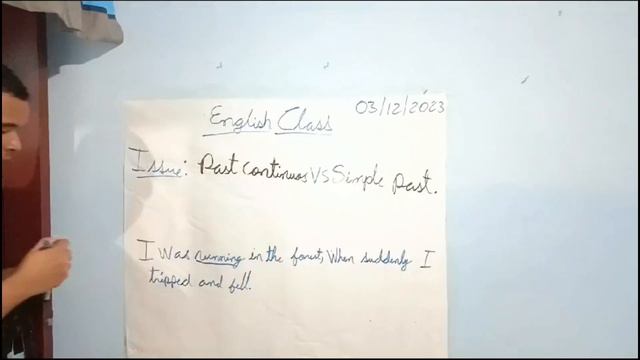 English Class
03/12/2023
Issue: Past continuos VS Simple Past.
I was running in the forest, When suddenly I
tripped and fell.